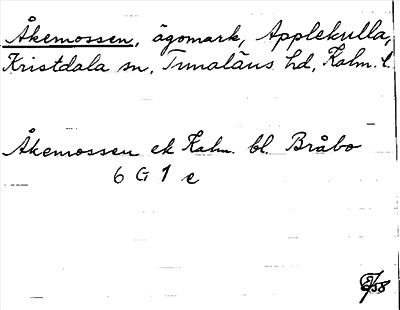 Åkemossen, ägomark, Applekulla,
Kristdala sn, Tunaläns hd, Kalm. l.
Åkemossen ek Kalm. bl. Bråbo
6 G 1 e